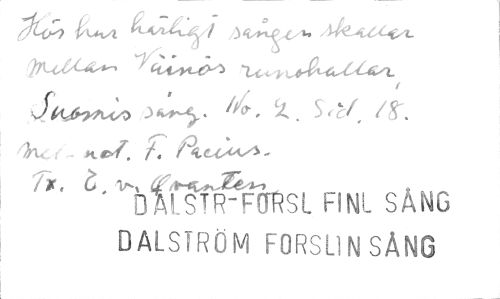 Hös hur härligt sången skallar
mellan Väinös runohallar,
Suomis sång. No. 2. Sid. 18.
mel. not. F. Pacius.
Tx. E. v. Qvanten
DALSTR-FORSL FINL SÅNG
DALSTRÖM FORSLIN SÅNG